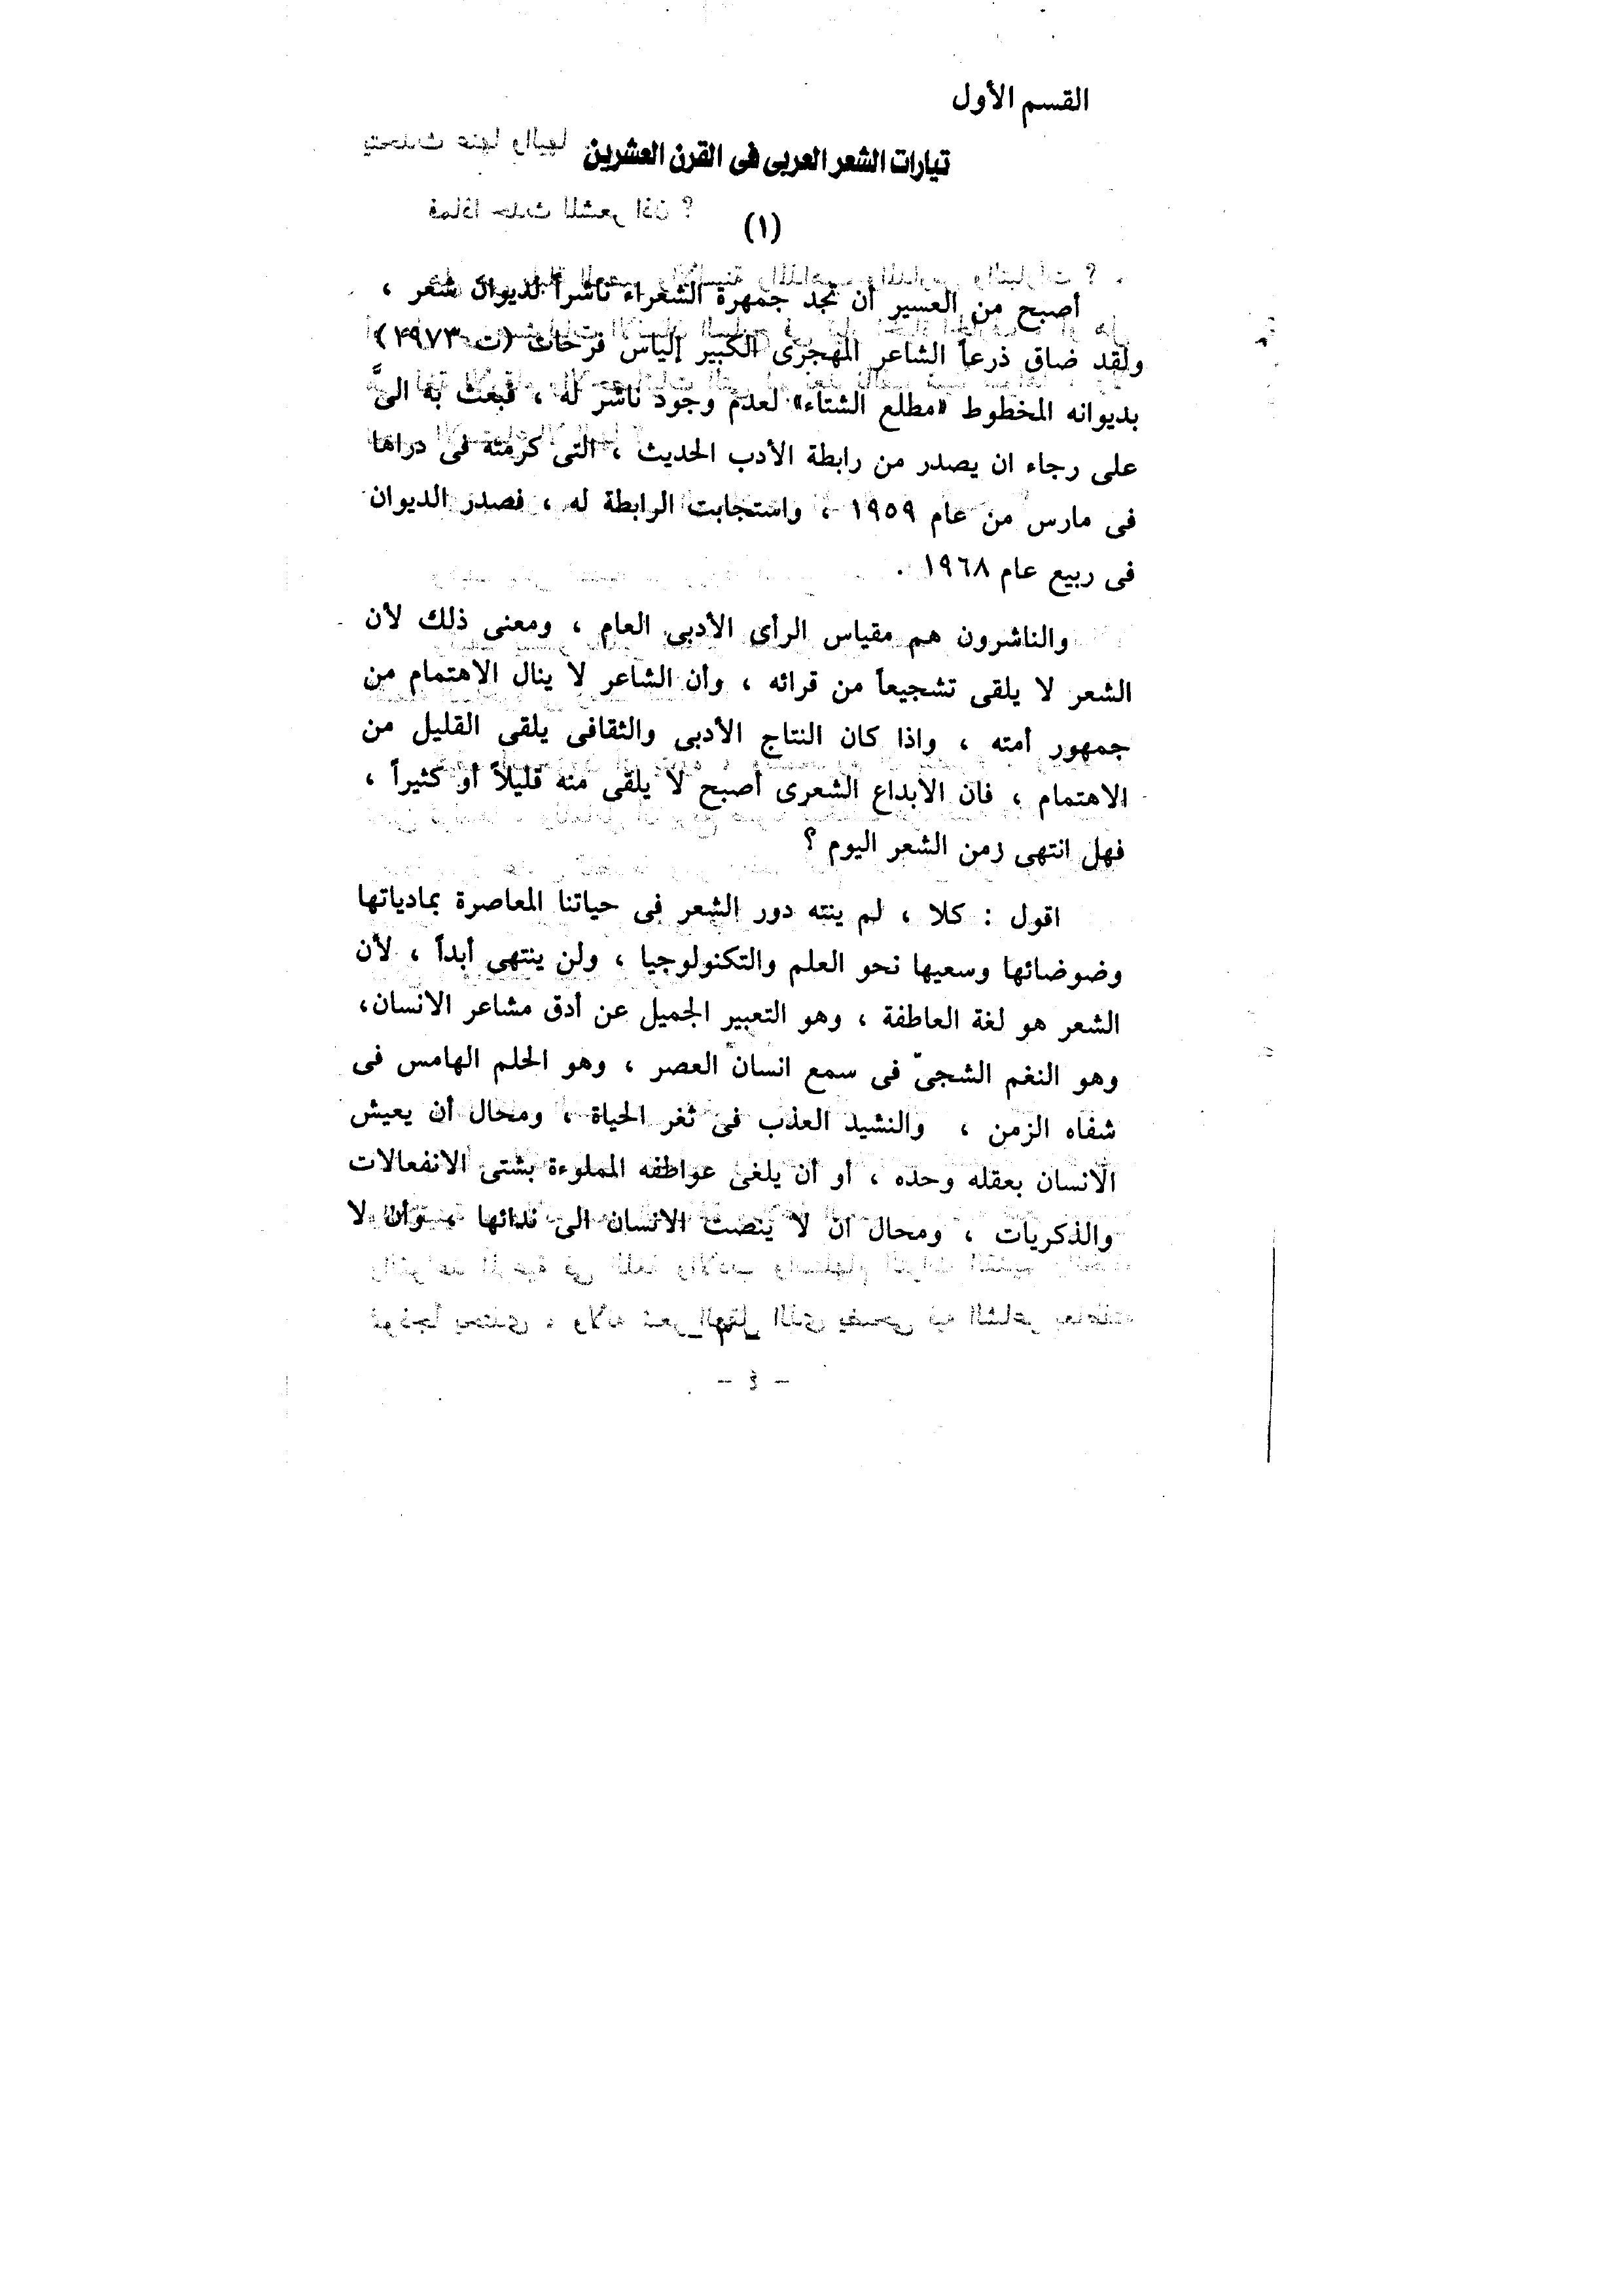 القسم الأول
تيارات الشعر العربى فى القرن العشرين
(١)
أصبح من العسير أن تجد جمهرة الشعراء ناشراً لديوان شعر ،
ولقد ضاق ذرعاً الشاعر المهجرى الكبير إلياس فرحات (ت ١٩٧٣)
بديوانه المخطوط «مطلع الشتاء» لعدم وجود ناشر له ، فبعث به الىَّ
على رجاء ان يصدر من رابطة الأدب الحديث ، التى كرمته فى دراها
فى مارس من عام ١٩٥٩ ، واستجابت الرابطة له ، فصدر الديوان
فى ربيع عام ١٩٦٨ .
والناشرون هم مقياس الرأى الأدبى العام ، ومعنى ذلك لأن
الشعر لا يلقى تشجيعاً من قرائه ، وأن الشاعر لا ينال الاهتمام من
جمهور أمته ، واذا كان النتاج الأدبى والثقافى يلقى القليل من
الاهتمام ، فان الابداع الشعرى أصبح لا يلقى منه قليلاً أو كثيراً ،
فهل انتهى زمن الشعر اليوم ؟
اقول : كلا ، لم ينته دور الشعر فى حياتنا المعاصرة بمادياتها
وضوضائها وسعيها نحو العلم والتكنولوجيا ، ولن ينتهى أبداً ، لأن
الشعر هو لغة العاطفة ، وهو التعبير الجميل عن أدق مشاعر الانسان،
وهو النغم الشجىّ فى سمع انسان العصر ، وهو الحلم الهامس فى
شفاه الزمن ، والنشيد العذب فى ثغر الحياة ، ومحال أن يعيش
الانسان بعقله وحده ، أو أن يلغى عواطفه المملوءة بشتى الانفعالات
والذكريات ، ومحال ان لا ينصت الانسان الى ندائها ، وأن لا